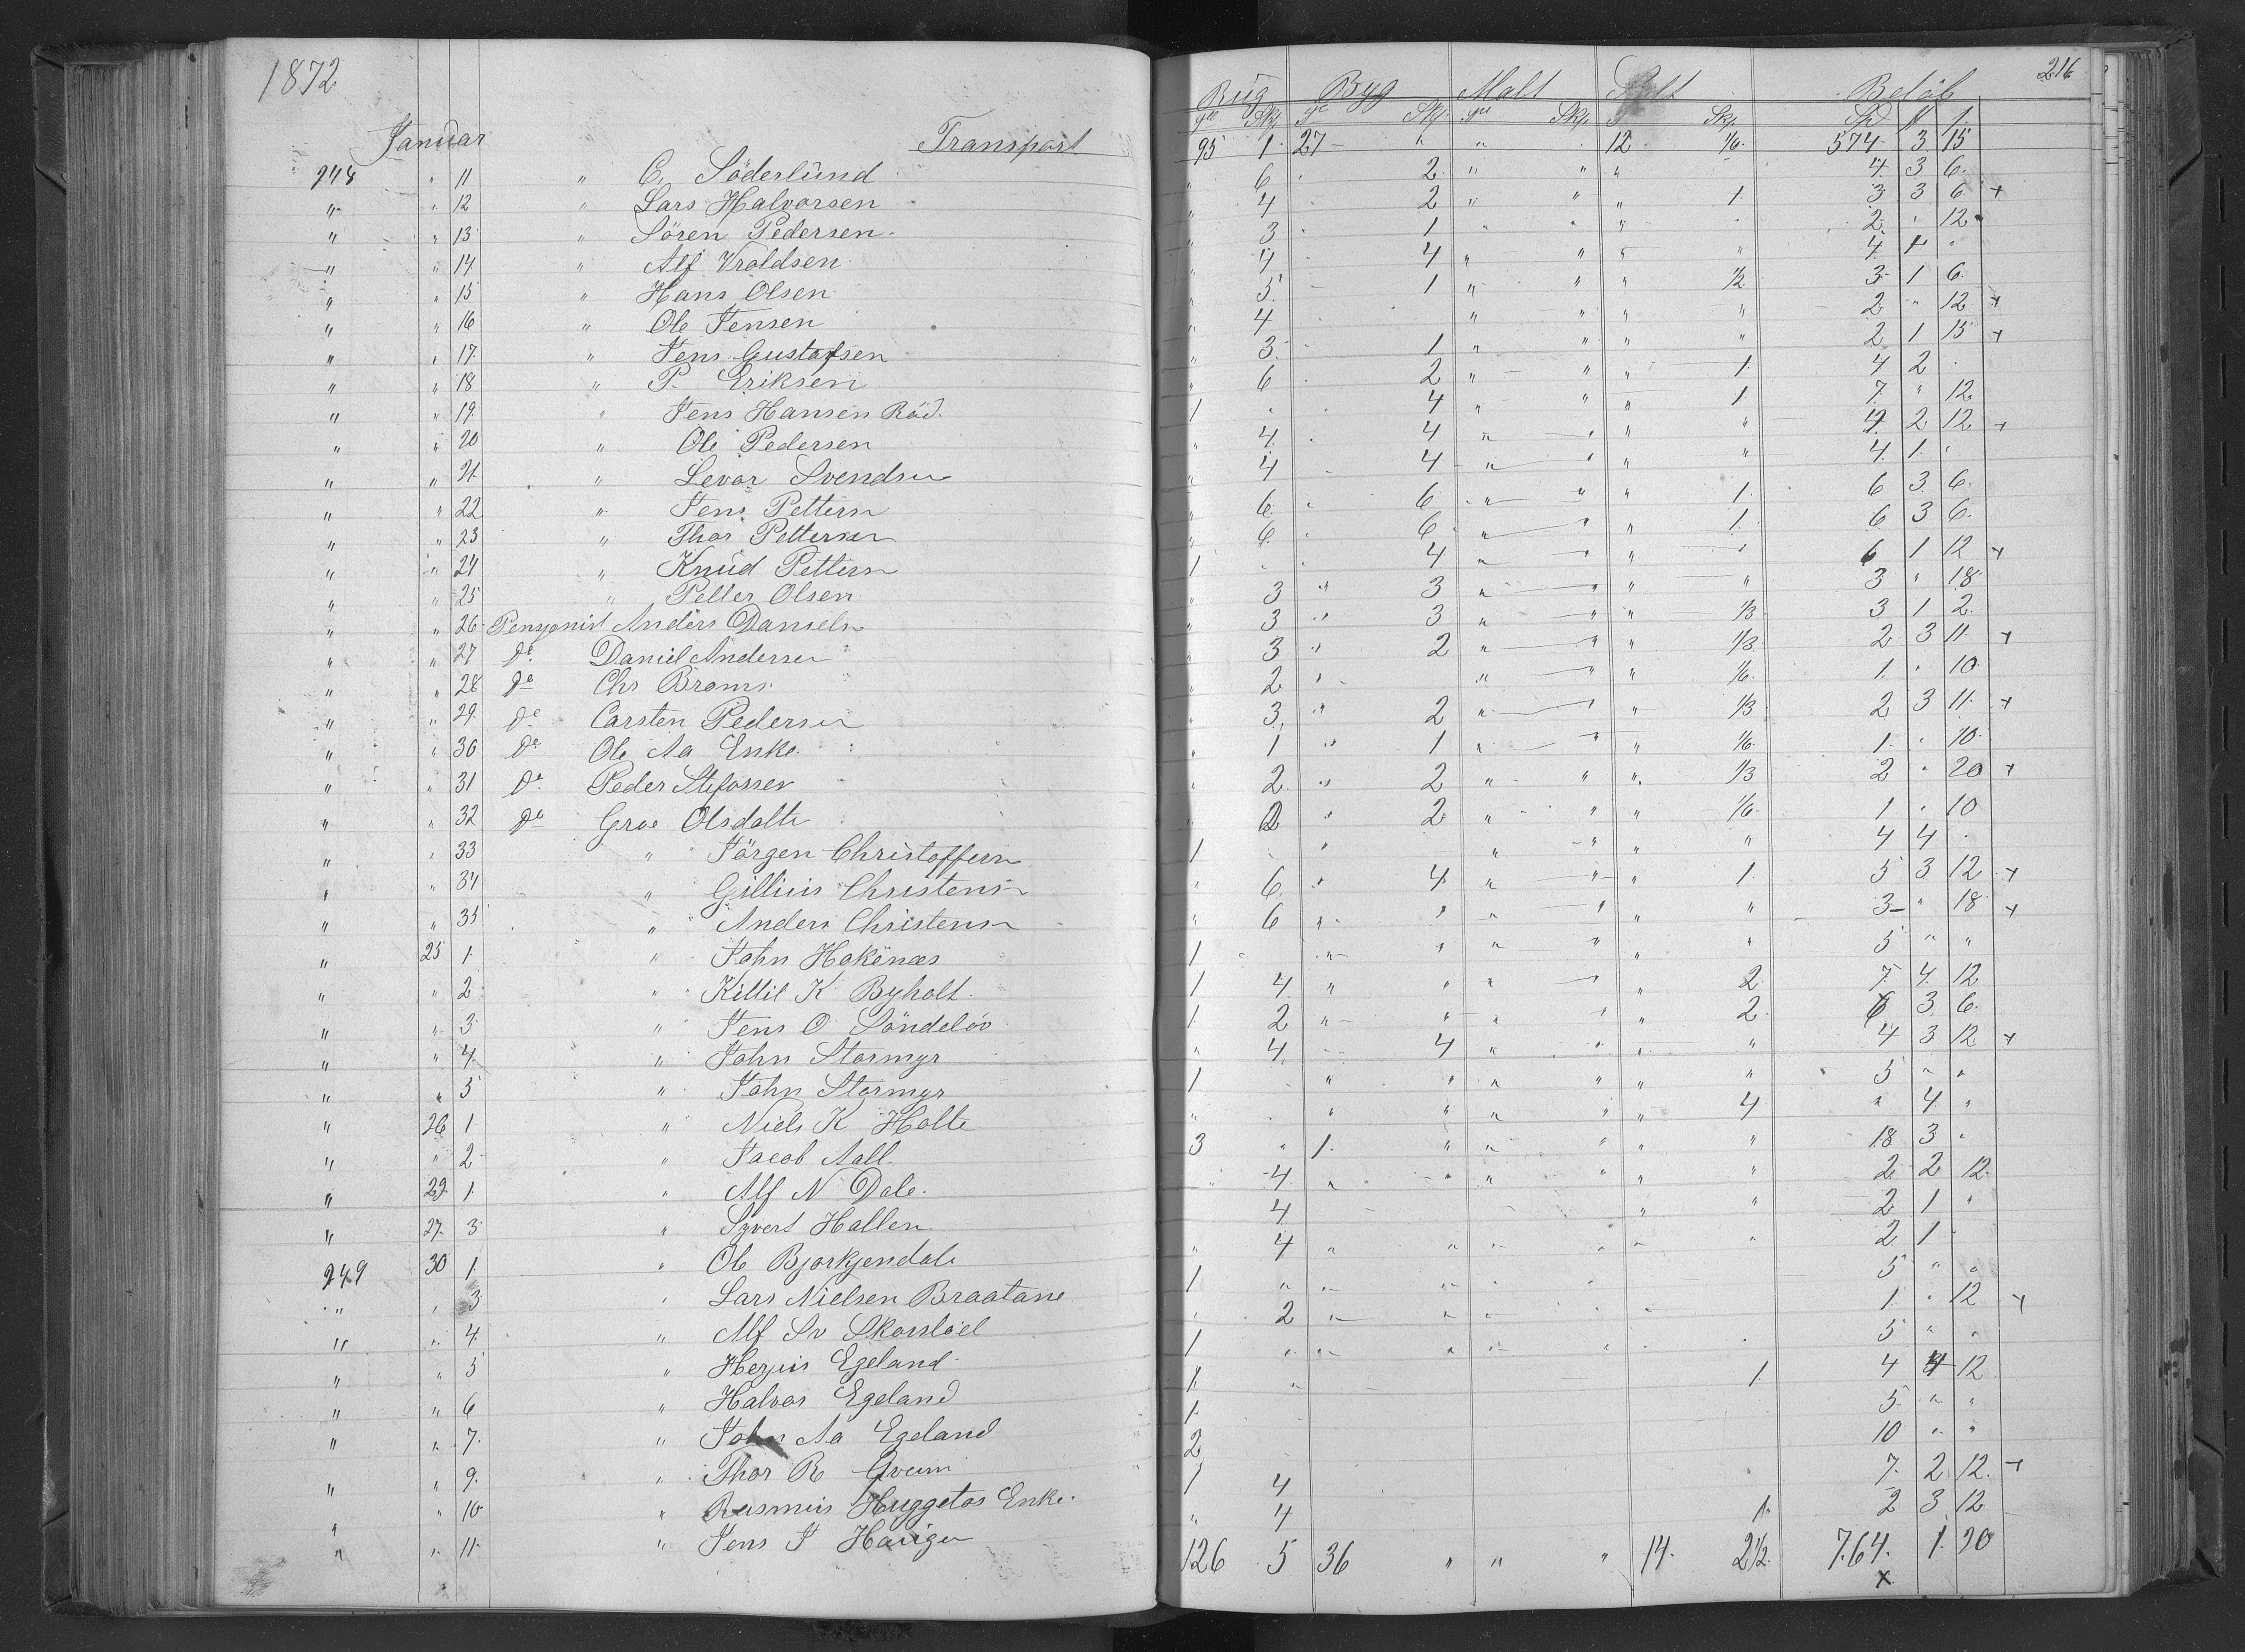 1872
216
Januar Transport
Rug Byg Malt Salt Beløb
95 1 27 " " 12 1/6 574 3 15
248 " 11 " C. Söderlund " 6 2 " " " 4 3 6
" " 12 " Lars Halvorsen " 4 2 " " " 1 3 3 6 +
" " 13 " Sören Pedersen " 3 1 " " " 2 " 12
" " 14 " Alf Vroldsen " 4 4 " " " " 4 1 "
" " 15 " Hans Olsen " 5 1 " " " 1/2 3 1 6
" " 16 " Ole Jensen " 4 " " " " 2 " 12 +
" " 17 " Jens Gustafsen " 3 1 " " " " 2 1 15 +
" " 18 " P. Eriksen " 6 2 " " " 1 4 2
" " 19 " Jens Hansen Röd 1 4 " " " 1 7 " 12
" " 20 " Ole Pedersen " 4 4 " " " " 4 2 12 +
" " 21 " Levor Svendsen " 4 4 " " " " 4 1 "
" " 22 " Jens Pettersn " 6 6 " " " 1 6 3 6
" " 23 " Thor Pettersen " 6 6 " " " 1 6 3 6
" " 24 " Knud Pettersn 1 4 " " " " 6 1 12 +
" " 25 " Petter Olsen " 3 " 3 " " " " 3 " 18
" " 26 Pensjonist Anders Danielsn " 3 " 3 " " " 1/3 3 1 2
" " 27 Do Daniel Andersen " 3 " 2 " " " 1/3 2 3 11 +
" " 28 Do Chr Broms " 2 " " " " 1/6 1 " 10
" " 29 Do Carsten Pedersen " 3 " 2 " " " 1/3 2 3 11 +
" " 30 Do Ole Aa Enke " 1 " 1 " " " 1/6 1 " 10
" " 31 Do Peder Stefassen " 2 " 2 " " " 1/3 2 " 20 +
" " 32 Do Groe Olsdatte " 2 " 2 " " " 1/6 1 " 10
" " 33 " Jörgen Christoffersn 1 " " " " " 4 4
" " 34 " Gillius Christensn " 6 " 4 " " " 1 5 3 12 +
" " 35 " Anders Christensn " 6 " " " " " " 3 " 18 +
" 25 1 " John Hokenæs 1 " " " " " " 5 " "
" " 2 " Kittil K Byholt 1 4 " " " " " 2 7 4 12
" " 3 " Jens O Söndelöv 1 2 " " " " " 2 6 3 6
" " 4 " John Stormyr " 4 4 " " " " 4 3 12 +
" " 5 " John Stormyr 1 " " " " " " 5 " "
" 26 1 " Niels K Holte " " " " " " 4 " 4 "
" " 2 " Jacob Aall 3 " 1 " " " " " 18 3 "
" 29 1 " Alf N Dale " 4 " " " " " " 2 2 12
" 27 3 " Syvert Hallen 4 " " 2 1 "
249 30 1 " Ole Bjorkjendale " 4 " " " " " " 2 1
" " 3 " Lars Nielsen Braatane 1 " " " " " 5 " "
" " 4 " Alf Sv Skorstöel " 2 " " " " " 1 " 12 +
" " 5 " Herjus Egeland 1 " " " " " 5 " "
" " 6 " Halvor Egeland 1 " 1 4 4 12
" " 7 " John Aa Egeland 1 5 " "
" " 9 " Thor R 2 10 " "
" " 10 " Rasmus Huggetos Enke 1 4 7 2 12 +
" " 11 " Jens J Haugen " 4 1 2 3 12
126 5 36 " " " 14 2 1/2 764 1 20
x